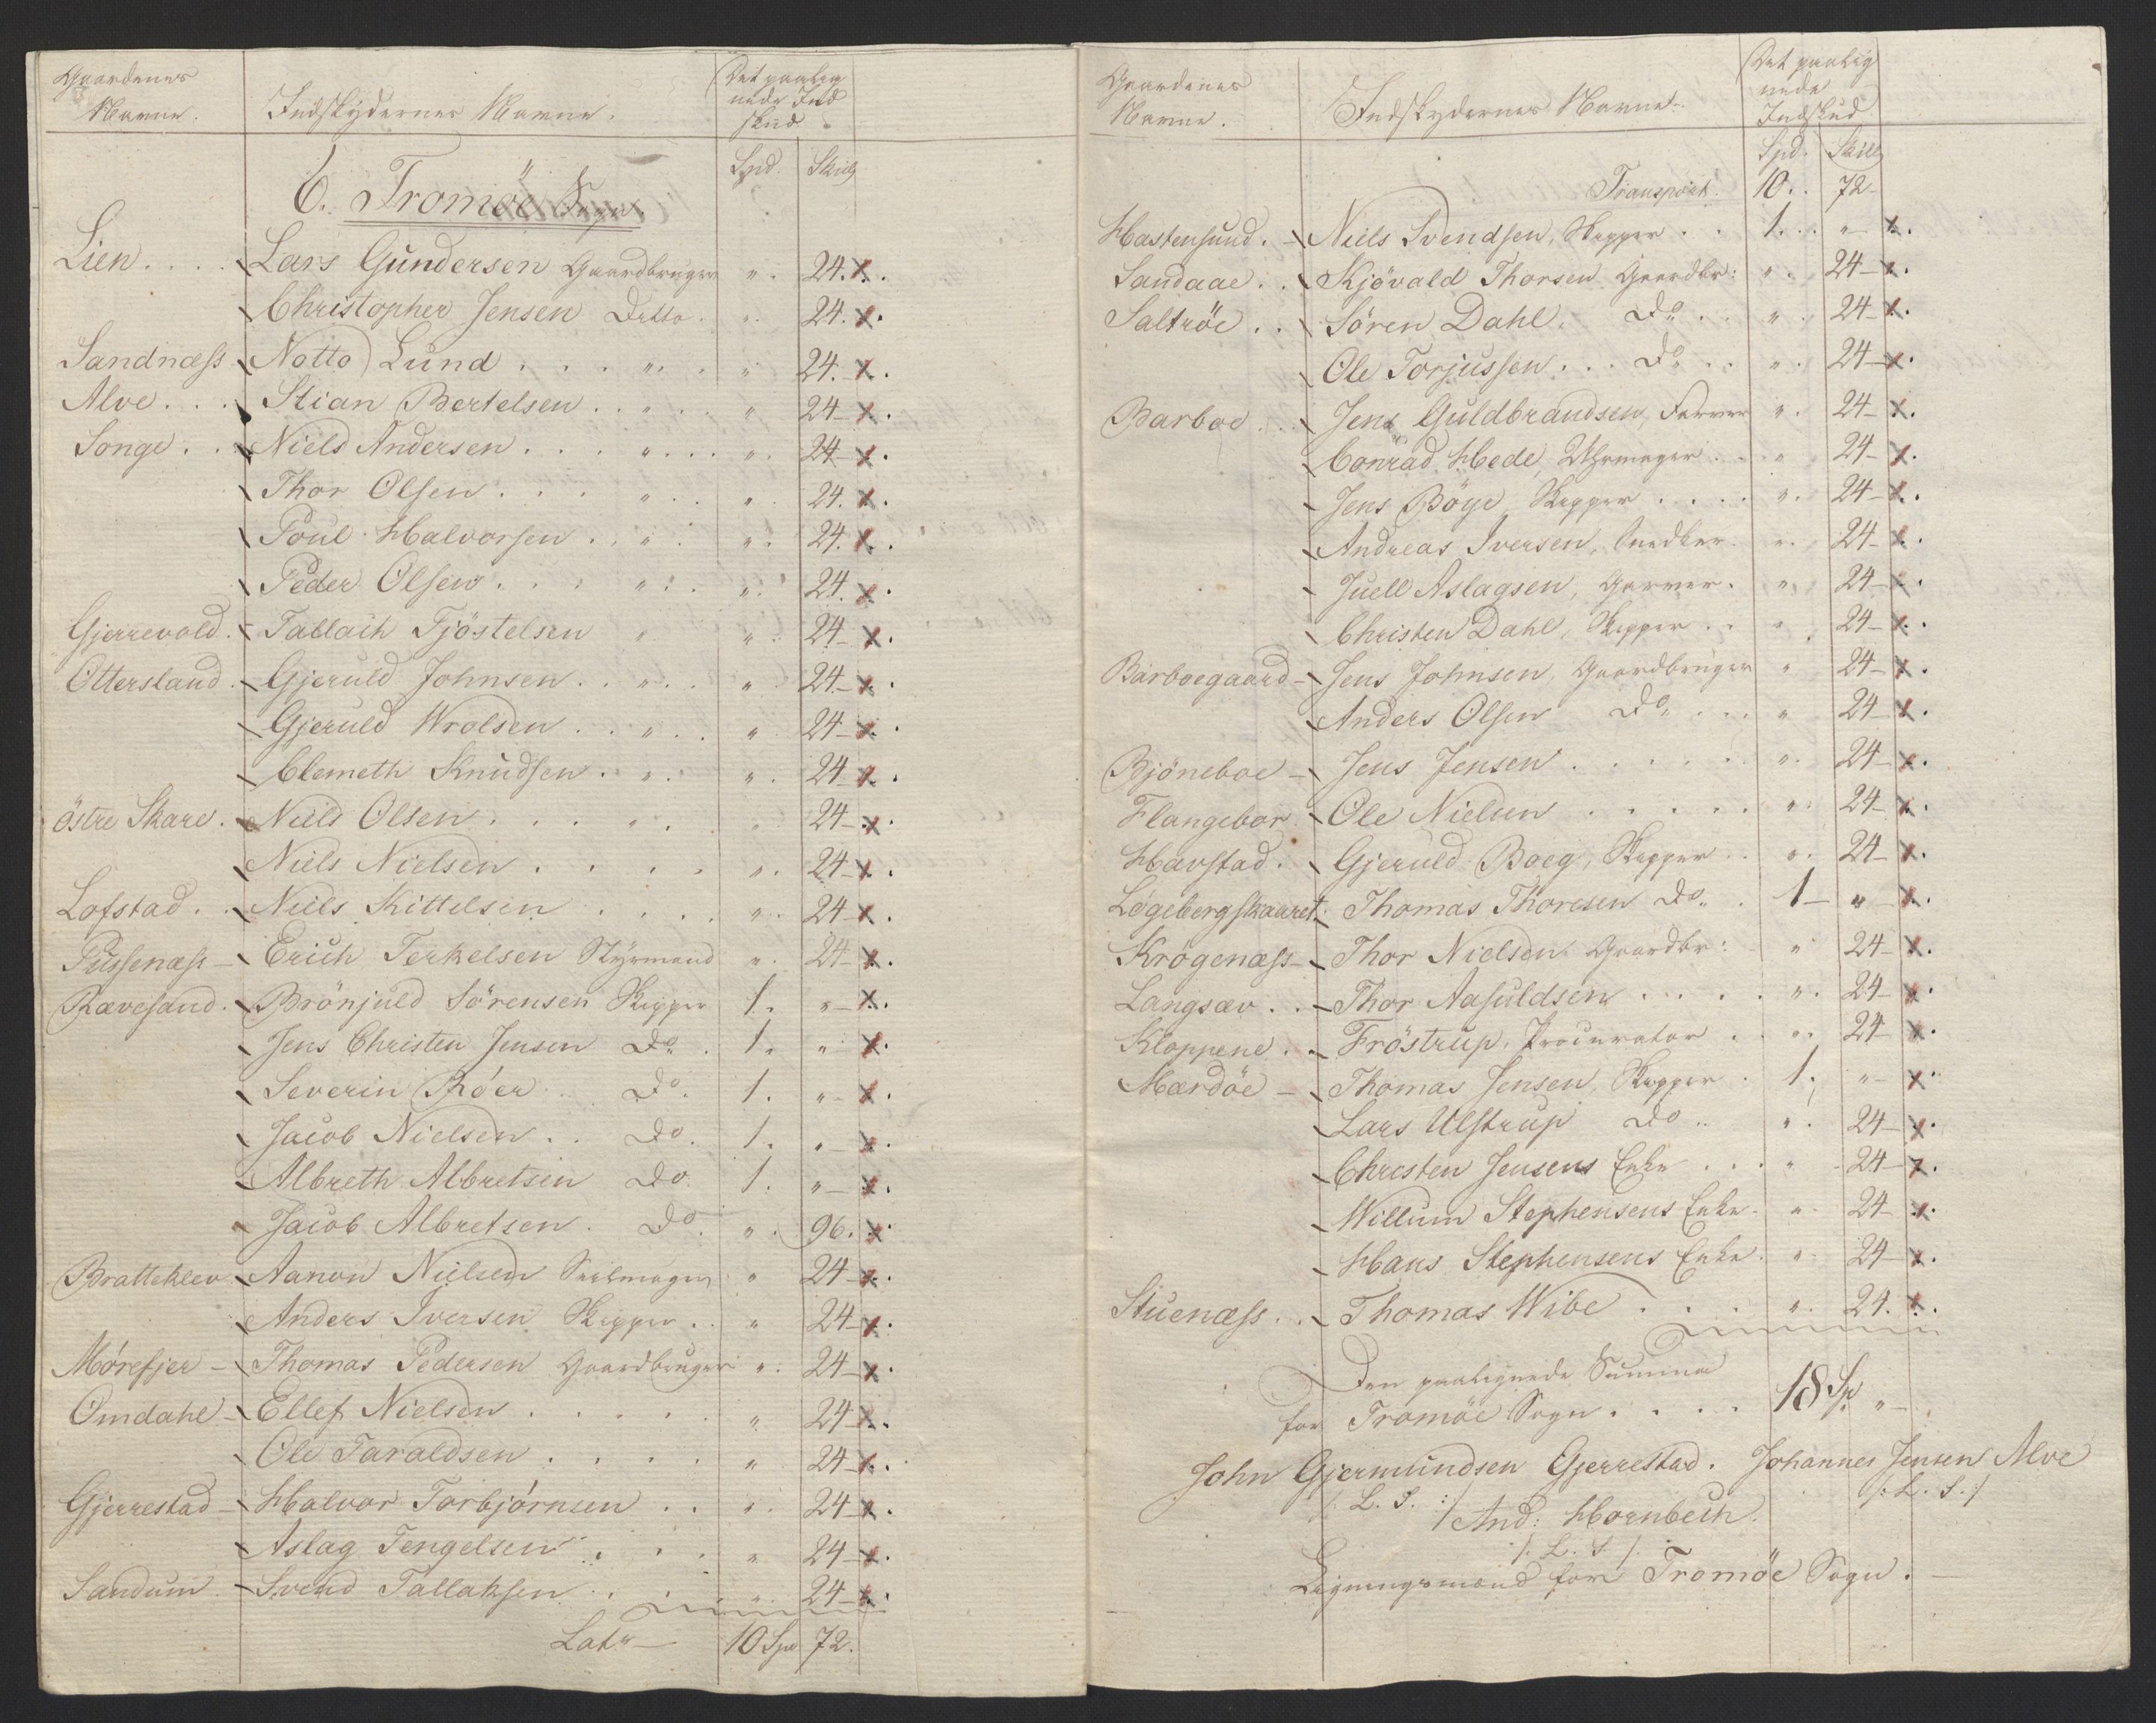 Gaardenes
Navne.
Indskydernes Navne.
Det paalig
nede Ind
skud
Spd. Skill
6. Tromöe Sogn.
Lien.... Lars Gundersen Gaardbruger " 24.
Christopher Jensen Ditto. " 24.
Sandnæss Notto Lund . . . " . " 24.
Alve... Stian Bertelsen . . " . . " 24-
Songe... Niels Andersen . . . " . . . " 24-
Thor Olsen . . . " . . " 24.
Poul Halvorsen . . " . " 24.
Peder Olsen . . . " . . " 24.
Gjerrevold. Tallach Tjöstelsen " " 24-
Otterstand. Gjeruld Johnsen . . " . . " 24-
Gjeruld Wrolsen . . " . . " 24-
Clemeth Knudsen . " . . " 24-
östre Skare. Niels Olsen . . . " . " 24-
Niels Nielsen . . . . . " 24-
Lofstad.. Niels Kittelsen . . . . " 24-
Pussenæss- Erich Terkelsen Styrmand " 24-
Rævesand. Brönjuld Sörensen Skipper 1. "-
Jens Christen Jensen Do. 1. "-
Severin Röer Do. 1. "-
Jacob Nielsen.. Do. 1. "-
Albreth Albretsen Do 1. "-
Jacob Albretsen. Do. " 96.
Bratteklev Aanon Nielsen Seilmager " 24-
Anders Iversen Skipper.. " 24-
Mörefjer- Thomas Pedersen Gaardbruger " 24-
Omdahl- Ellef Nielsen . . . . . " 24-
Ole Taraldsen . . . . . " 24-
Gjerrestad- Halvor Torbjörnsen . . " 24-
Aslag Tengelsen . . . " 24-
Sandum- Svend Tallaksen . . . " 24-
Lat.- 10 Spd 72.
Gaardenes
Navne.
Indskydernes Navne-
Det paalig
nede
Indskud
Spd. Skill
Transport. 10.. 72-
Hastensund.- Niels Svendsen, Skipper . . 1... "-
Sandaae.. Kjövald Thorsen Gaardbr: " 24-
Saltröe.. Sören Dahl. Do . . " 24-
Ole Torjussen... Do . . " 24-
Barboe... Jens Guldbrandsen, Farver " 24-
Conrad Hede, Uhrmager . . " 24-
Jens Böye, Skipper . . . . " 24-
Andreas Iversen, Snedker. " 24-
Juell Aslagsen, Garver. " 24-
Christen Dahl, Skipper . . " 24-
Barboegaard- Jens Johnsen, Gaardbruger " 24-
Anders Olsen Do. ... " 24-
Bjöneboe- Jens Jensen . . . . . . " 24-
Flangebor. Ole Nielsen . . . . . " 24-
Havstad. Gjeruld Boeg, Skipper . . " 24-
Løgebergskaaret. Thomas Thoresen Do. . 1- "-
Krögenæss- Thor Nielsen Gaardbr: " 24-
Langsæv... Thor Aasuldsen . . . . " 24-
Kloppene.. Fröstrup, Procurator . . " 24-
Mærdöe- Thomas Jensen, Skipper . 1. "-
Lars Ulstrup Do.. " 24-
Christen Jensens Enke ... " 24-
Willum Stephensens Enke- " 24-
Hans Stephensens Enke. " 24-
Stuenæss.. Thomas Wibe . . . . " 24.
Den paalignede Summa
for Tromöe Sogn.... 18 Sp. "-
John Gjermundsen Gjerrestad. Johannes Jensen Alve
/: L. S. :/ /: L. S. :/
And: Hornbech.
/: L. S. :/
Ligningsmænd for Tromöe Sogn.-